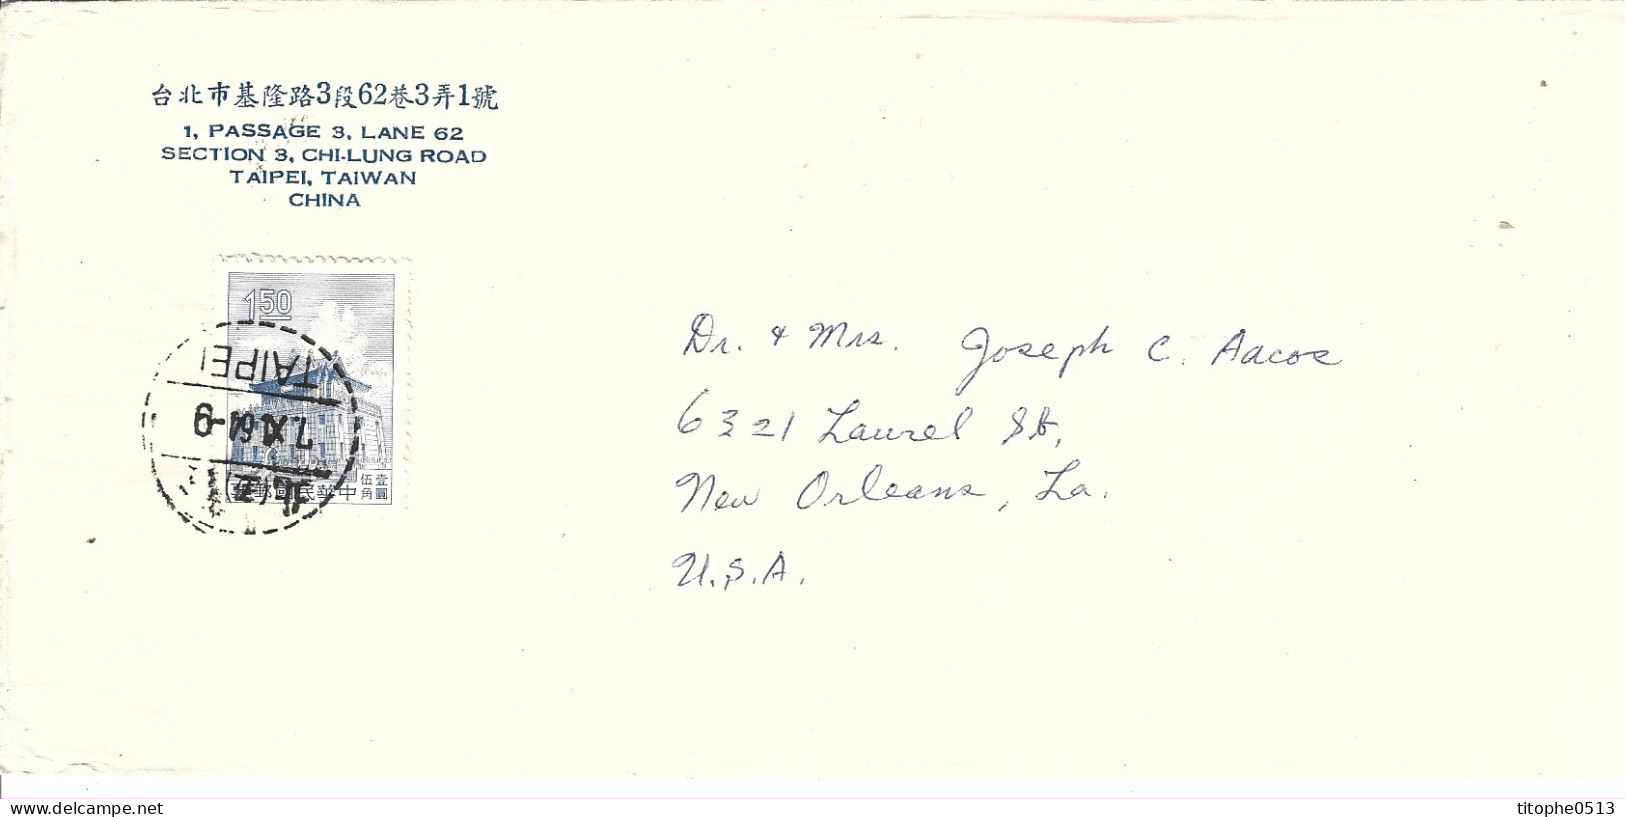 台北市基隆路3段62巷3弄1號
1, PASSAGE 3, LANE 62
SECTION 3, CHI-LUNG ROAD
TAIPEI, TAIWAN
CHINA
1.50
TAIPEI
7.XI.64-9
伍角
壹圓
郵國民華中
Dr. & Mrs. Joseph C. Aacos
6321 Laurel St,
New Orleans, La.
U.S.A.
www.delcampe.net
titophe0513